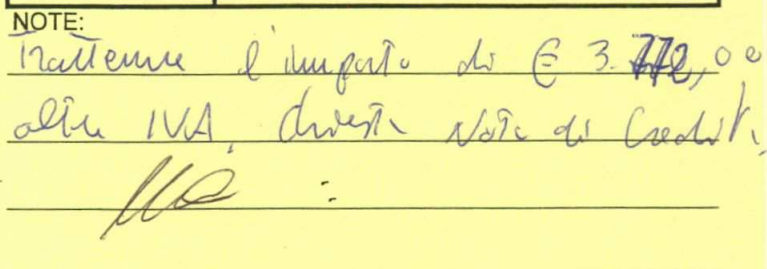 NOTE:
Trattenere l'importo di € 3.772,00
oltre IVA, chiesta Nota di Credito,